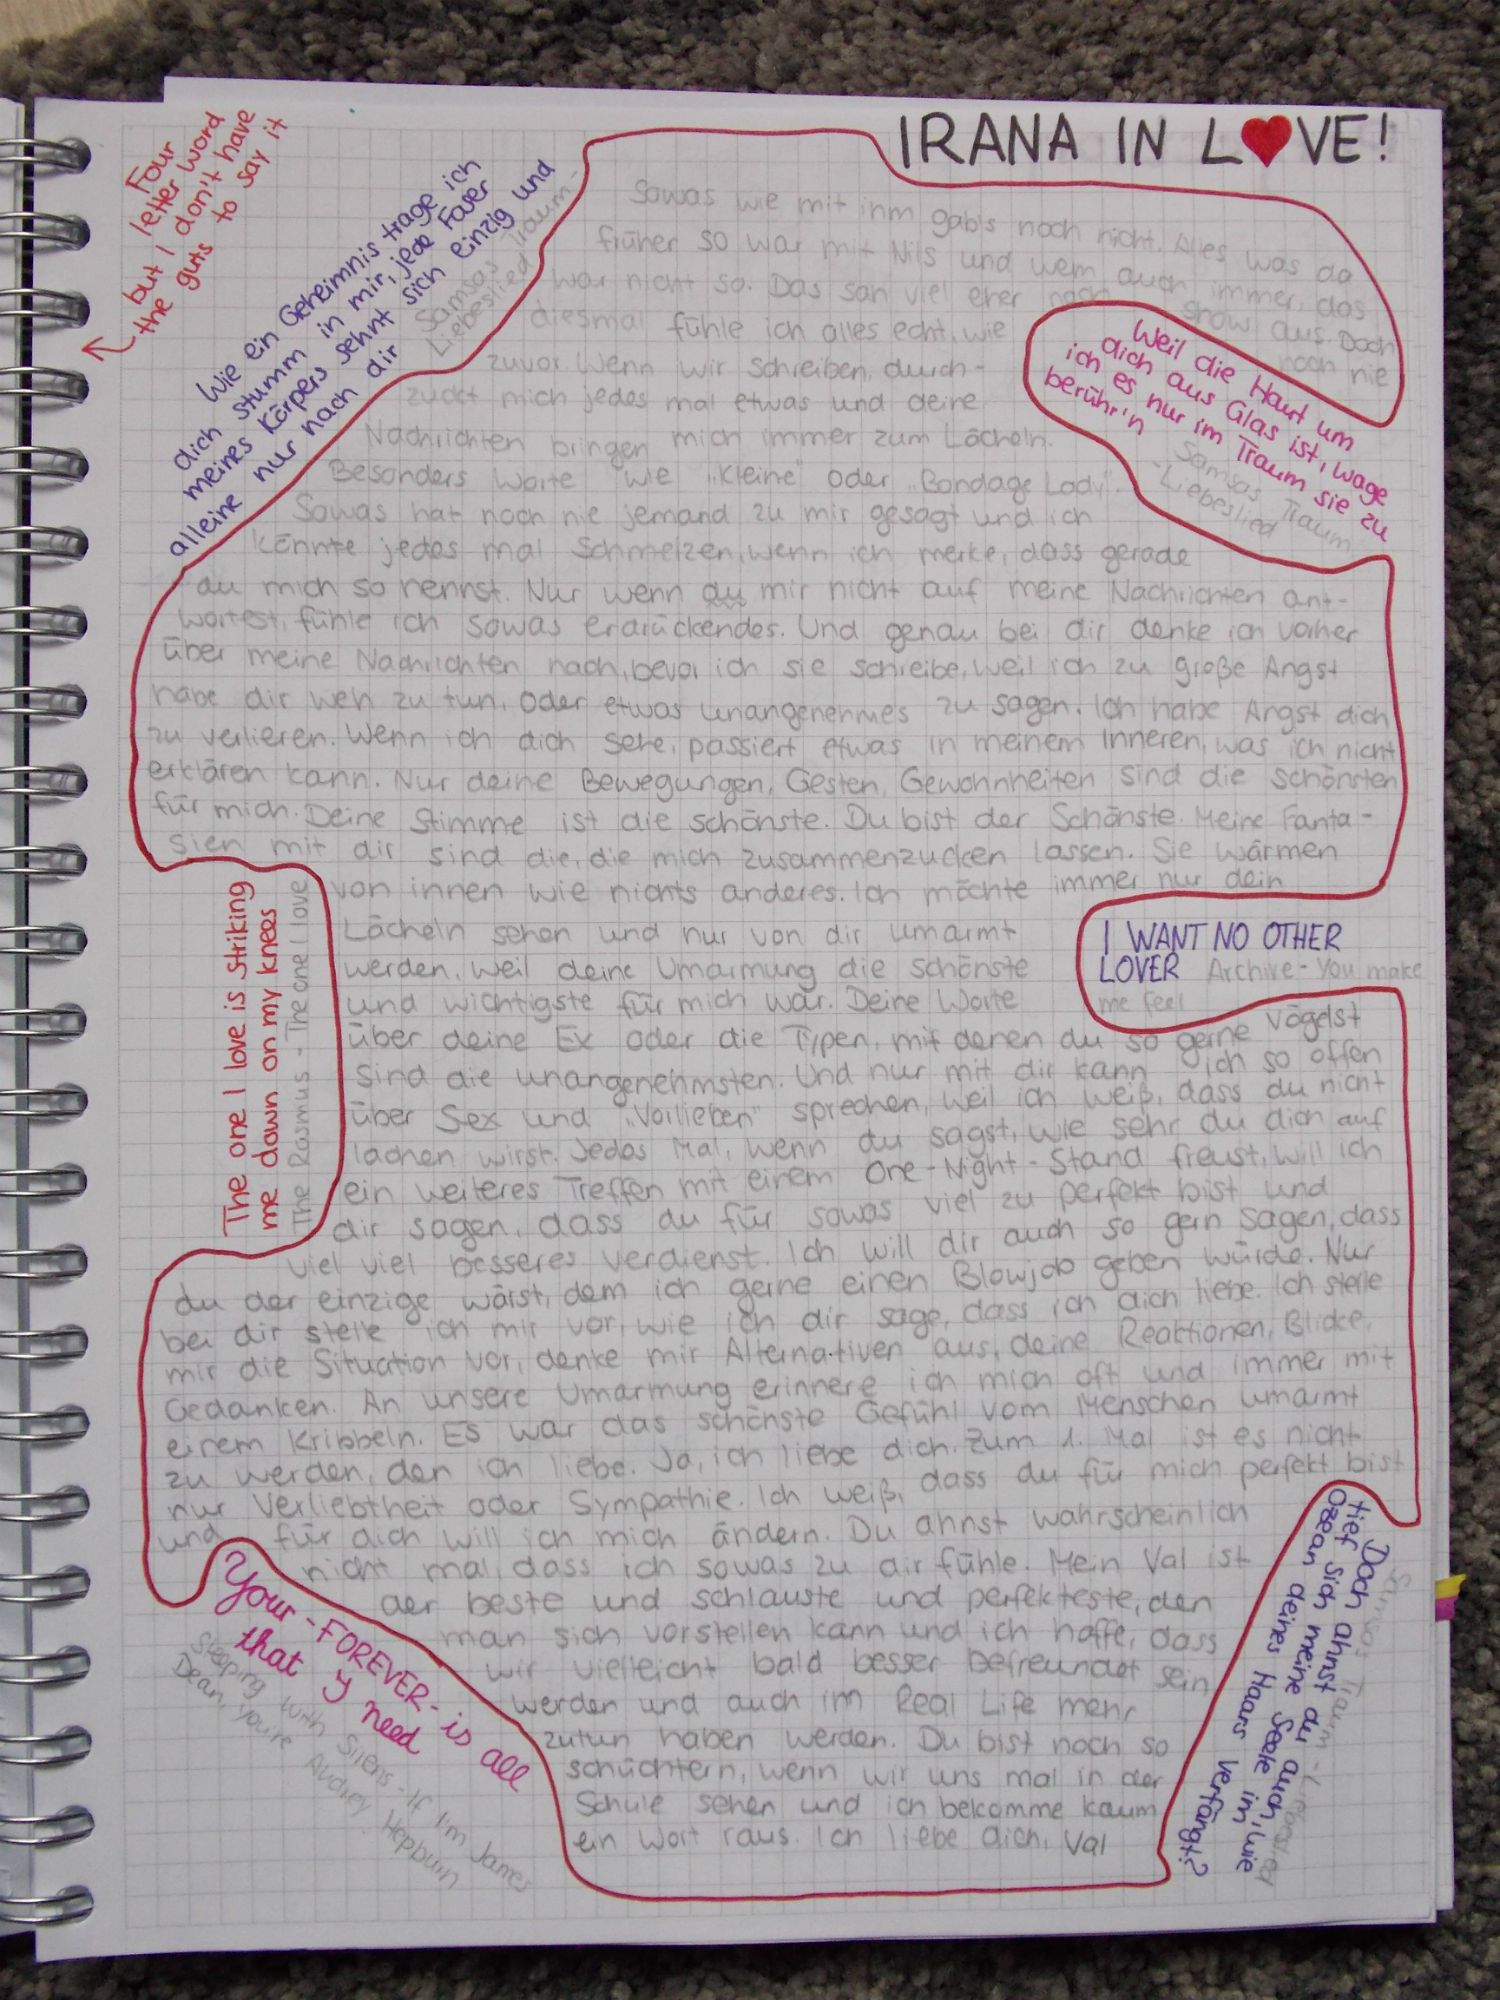 IRANA IN L♥VE!
Four
letter word
but I don't have
the guts to say it
Wie ein Geheimnis trage ich
dich stumm in mir, jede Faser
meines Körpers sehnt sich einzig und
alleine nur nach dir
Samsas Traum -
Liebeslied
Sowas wie mit ihm gab's noch nicht. Alles was da
früher so war mit Nils und wem auch immer, das
war nicht so. Das sah viel eher nach Show aus. Doch
diesmal fühle ich alles echt, wie noch nie
zuvor. Wenn wir schreiben, durch-
zuckt mich jedes mal etwas und deine
Nachrichten bringen mich immer zum Lächeln.
Besonders Worte wie „Kleine" oder „Bondage Lady".
Sowas hat noch nie jemand zu mir gesagt und ich
könnte jedes mal schmelzen, wenn ich merke, dass gerade
du mich so nennst. Nur wenn du mir nicht auf meine Nachrichten ant-
wortest, fühle ich sowas erdrückendes. Und genau bei dir denke ich vorher
über meine Nachrichten nach, bevor ich sie schreibe, weil ich zu große Angst
habe dir weh zu tun, oder etwas unangenehmes zu sagen. Ich habe Angst dich
zu verlieren. Wenn ich dich sehe, passiert etwas in meinem Inneren, was ich nicht
erklären kann. Nur deine Bewegungen, Gesten, Gewohnheiten sind die schönsten
für mich. Deine Stimme ist die schönste. Du bist der Schönste. Meine Fanta-
sien mit dir sind die, die mich zusammenzucken lassen. Sie wärmen
von innen wie nichts anderes. Ich möchte immer nur dein
Lächeln sehen und nur von dir umarmt
werden, weil deine Umarmung die schönste
und wichtigste für mich war. Deine Worte
über deine Ex oder die Typen, mit denen du so gerne vögelst
sind die unangenehmsten. Und nur mit dir kann ich so offen
über Sex und „Vorlieben" sprechen, weil ich weiß, dass du nicht
lachen wirst. Jedes Mal, wenn du sagst, wie sehr du dich auf
ein weiteres Treffen mit einem One-Night-Stand freust, will ich
dir sagen, dass du für sowas viel zu perfekt bist und
viel viel besseres verdienst. Ich will dir auch so gern sagen, dass
du der einzige wärst, dem ich gerne einen Blowjob geben würde. Nur
bei dir stelle ich mir vor, wie ich dir sage, dass ich dich liebe. Ich stelle
mir die Situation vor, denke mir Alternativen aus, deine Reaktionen, Blicke,
Gedanken. An unsere Umarmung erinnere ich mich oft und immer mit
einem Kribbeln. Es war das schönste Gefühl vom Menschen umarmt
zu werden, den ich liebe. Ja, ich liebe dich. Zum 1. Mal ist es nicht
nur Verliebtheit oder Sympathie. Ich weiß, dass du für mich perfekt bist
und für dich will ich mich ändern. Du ahnst wahrscheinlich
nicht mal, dass ich sowas zu dir fühle. Mein Val ist
der beste und schlauste und perfekteste, den
man sich vorstellen kann und ich hoffe, dass
wir vielleicht bald besser befreundet sein
werden und auch im Real Life mehr
zutun haben werden. Du bist noch so
schüchtern, wenn wir uns mal in der
Schule sehen und ich bekomme kaum
ein Wort raus. Ich liebe dich, Val
Weil die Haut um
dich aus Glas ist, wage
ich es nur im Traum sie zu
berühr'n
Samsas Traum
-Liebeslied
The one I love is striking
me down on my knees
The Rasmus - The one I love
I WANT NO OTHER
LOVER Archive - You make
me feel
Your - FOREVER - is all
that I need
Sleeping with Sirens - If I'm James
Dean, you're Audrey Hepburn
Doch ahnst du auch, wie
tief sich meine Seele im
Ozean deines Haars verfängt?
Samsas Traum - Liebeslied